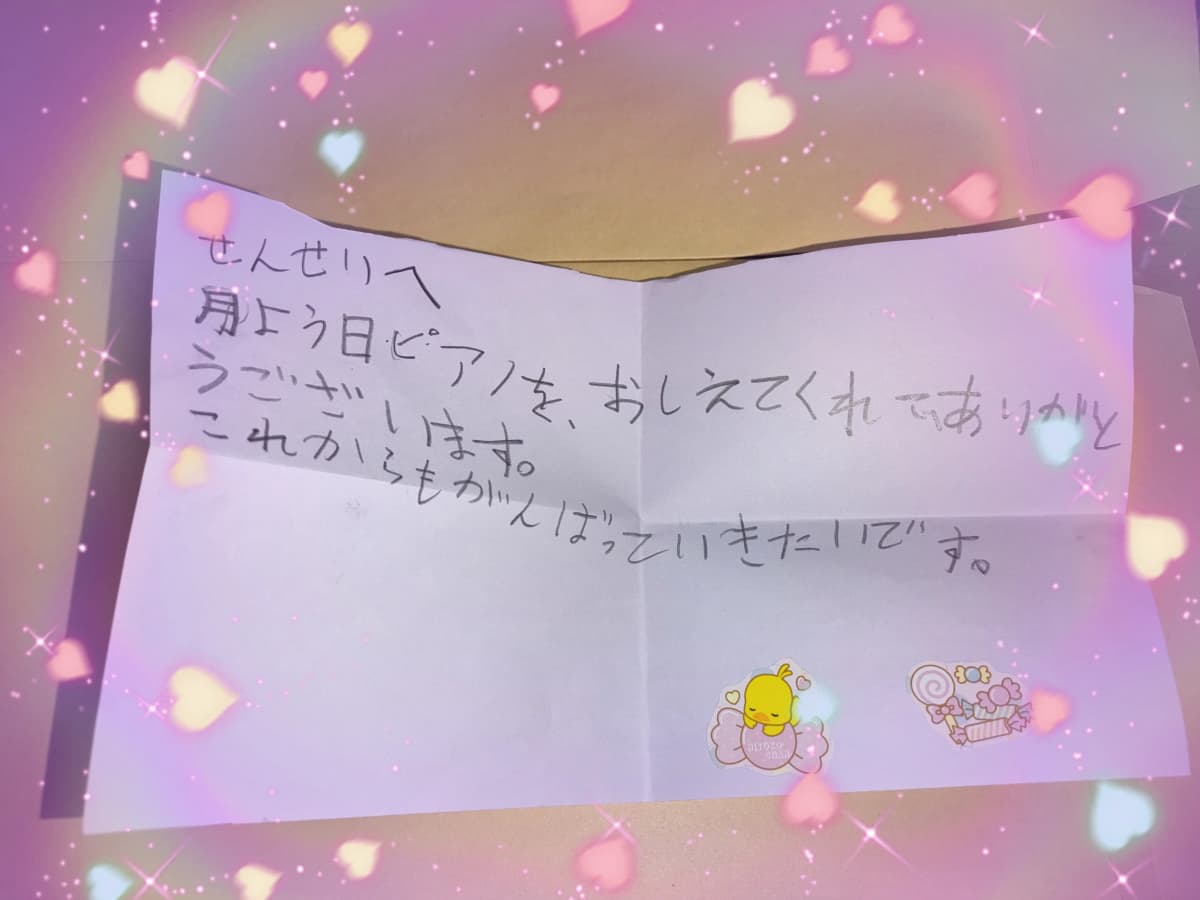 せんせいへ
月よう日ピアノを、おしえてくれてありがと
うございます。
これからもがんばっていきたいです。